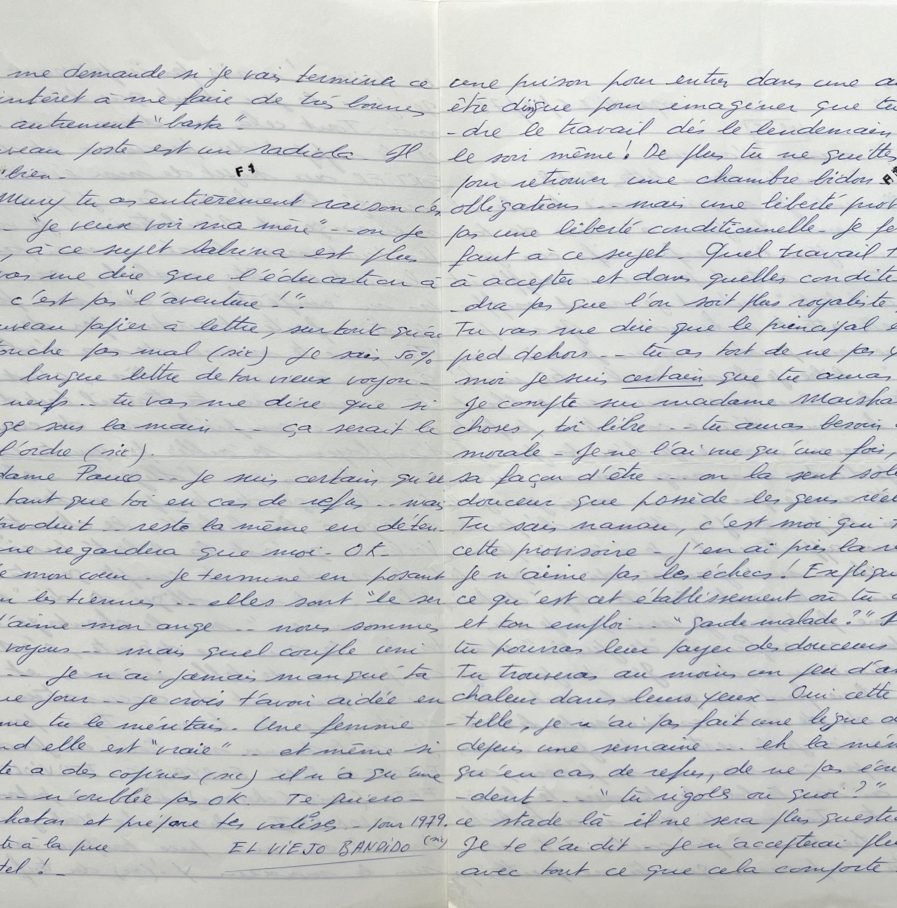 me demande si je vais terminer ce
intérêt à me faire de très bonnes
autrement "basta".
veau poste est un radiola Il
bien.
F1
Muny tu as entièrement raison c'es
- "je veux voir ma mère" -- on je
, à ce sujet Sabrina est plus
vas me dire que l'éducation à
c'est pas "l'aventure!".
uveau papier à lettre, surtout qu'au
touche pas mal (sic) je suis 50%
longue lettre de ton vieux voyou -
neufs.. tu vas me dire que si
gé sous la main -- ça serait le
l'ordre (sic).
dame Pauco -- Je suis certain qu'el
tant que toi en cas de refus .. mais
produit - reste la même en déten
ne regardera que moi - OK -
mon cœur. Je termine en posant
les tiennes .. elles sont "le ser
'aime mon ange .. nous sommes
voyous -- mais quel couple uni
-- Je n'ai jamais manqué ta
ue jour -- je crois t'avoir aidée en
me tu le méritais. Une femme
nd elle est "vraie" .. et même si
te a des copines (sic) il n'a qu'une
--- n'oublie pas OK. Te quiero -
et prépare tes valises - pour 1979.
à la pue EL VIEJO BANDIDO (sic)
tel! -
une prison pour entrer dans une a
être dingue pour imaginer que tu
-dre le travail dès le lendemain
le soir même! De plus tu ne quittes
pour retrouver une chambre bidon
F1
obligations ... mais une liberté prov
pas une liberté conditionnelle - Je fe
faut à ce sujet. Quel travail t
à accepter et dans quelles conditi
-dra pas que l'on soit plus royaliste
Tu vas me dire que le principal e
pied dehors -- tu as tort de ne pas
moi je suis certain que tu auras
Je compte sur madame Marsha
choses, toi libre -- tu auras besoin
morale - Je ne l'ai vue qu'une fois,
sa façon d'être ... on la sent soli
douceur que possède les gens réel
Tu sais nanau, c'est moi qui
cette provisoire - J'en ai pris la r
Je n'aime pas les échecs! Explique
ce qu'est cet établissement où tu
et ton emploi .. "garde malade?"
tu pourras leur payer des douceurs
Tu trouveras au moins un peu d'a
chaleur dans leurs yeux - Oui cette
-telle, je n'ai pas fait une ligne d
depuis une semaine ... eh la mén
qu'en cas de refus, de ne pas écou
-dent ... "tu rigoles ou quoi?"
ce stade là il ne sera plus questi
Je te l'ai dit - Je n'accepterai plu
avec tout ce que cela comporte